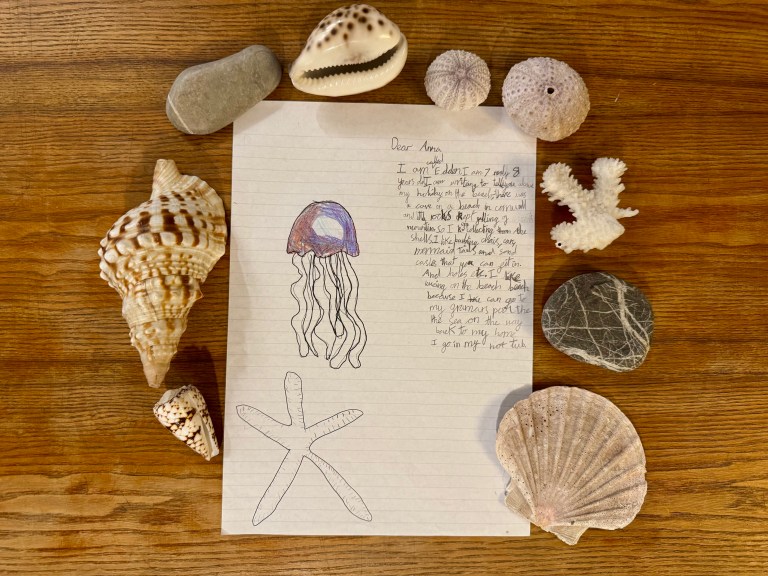 Dear Anna
I am Eddon I am 7 nearly 8
years old I am writing to tell you about
my holiday on the beach there was
a cave on a beach in cornwall
and rocks kept falling of
mountain so I collecting them the
shells I like building
mermaid tails and sand
casle that you can get in.
And holes I like
being on the beach
because I can go to
my granmars pool like
the sea on the way
back to my home
I go in my hot tub